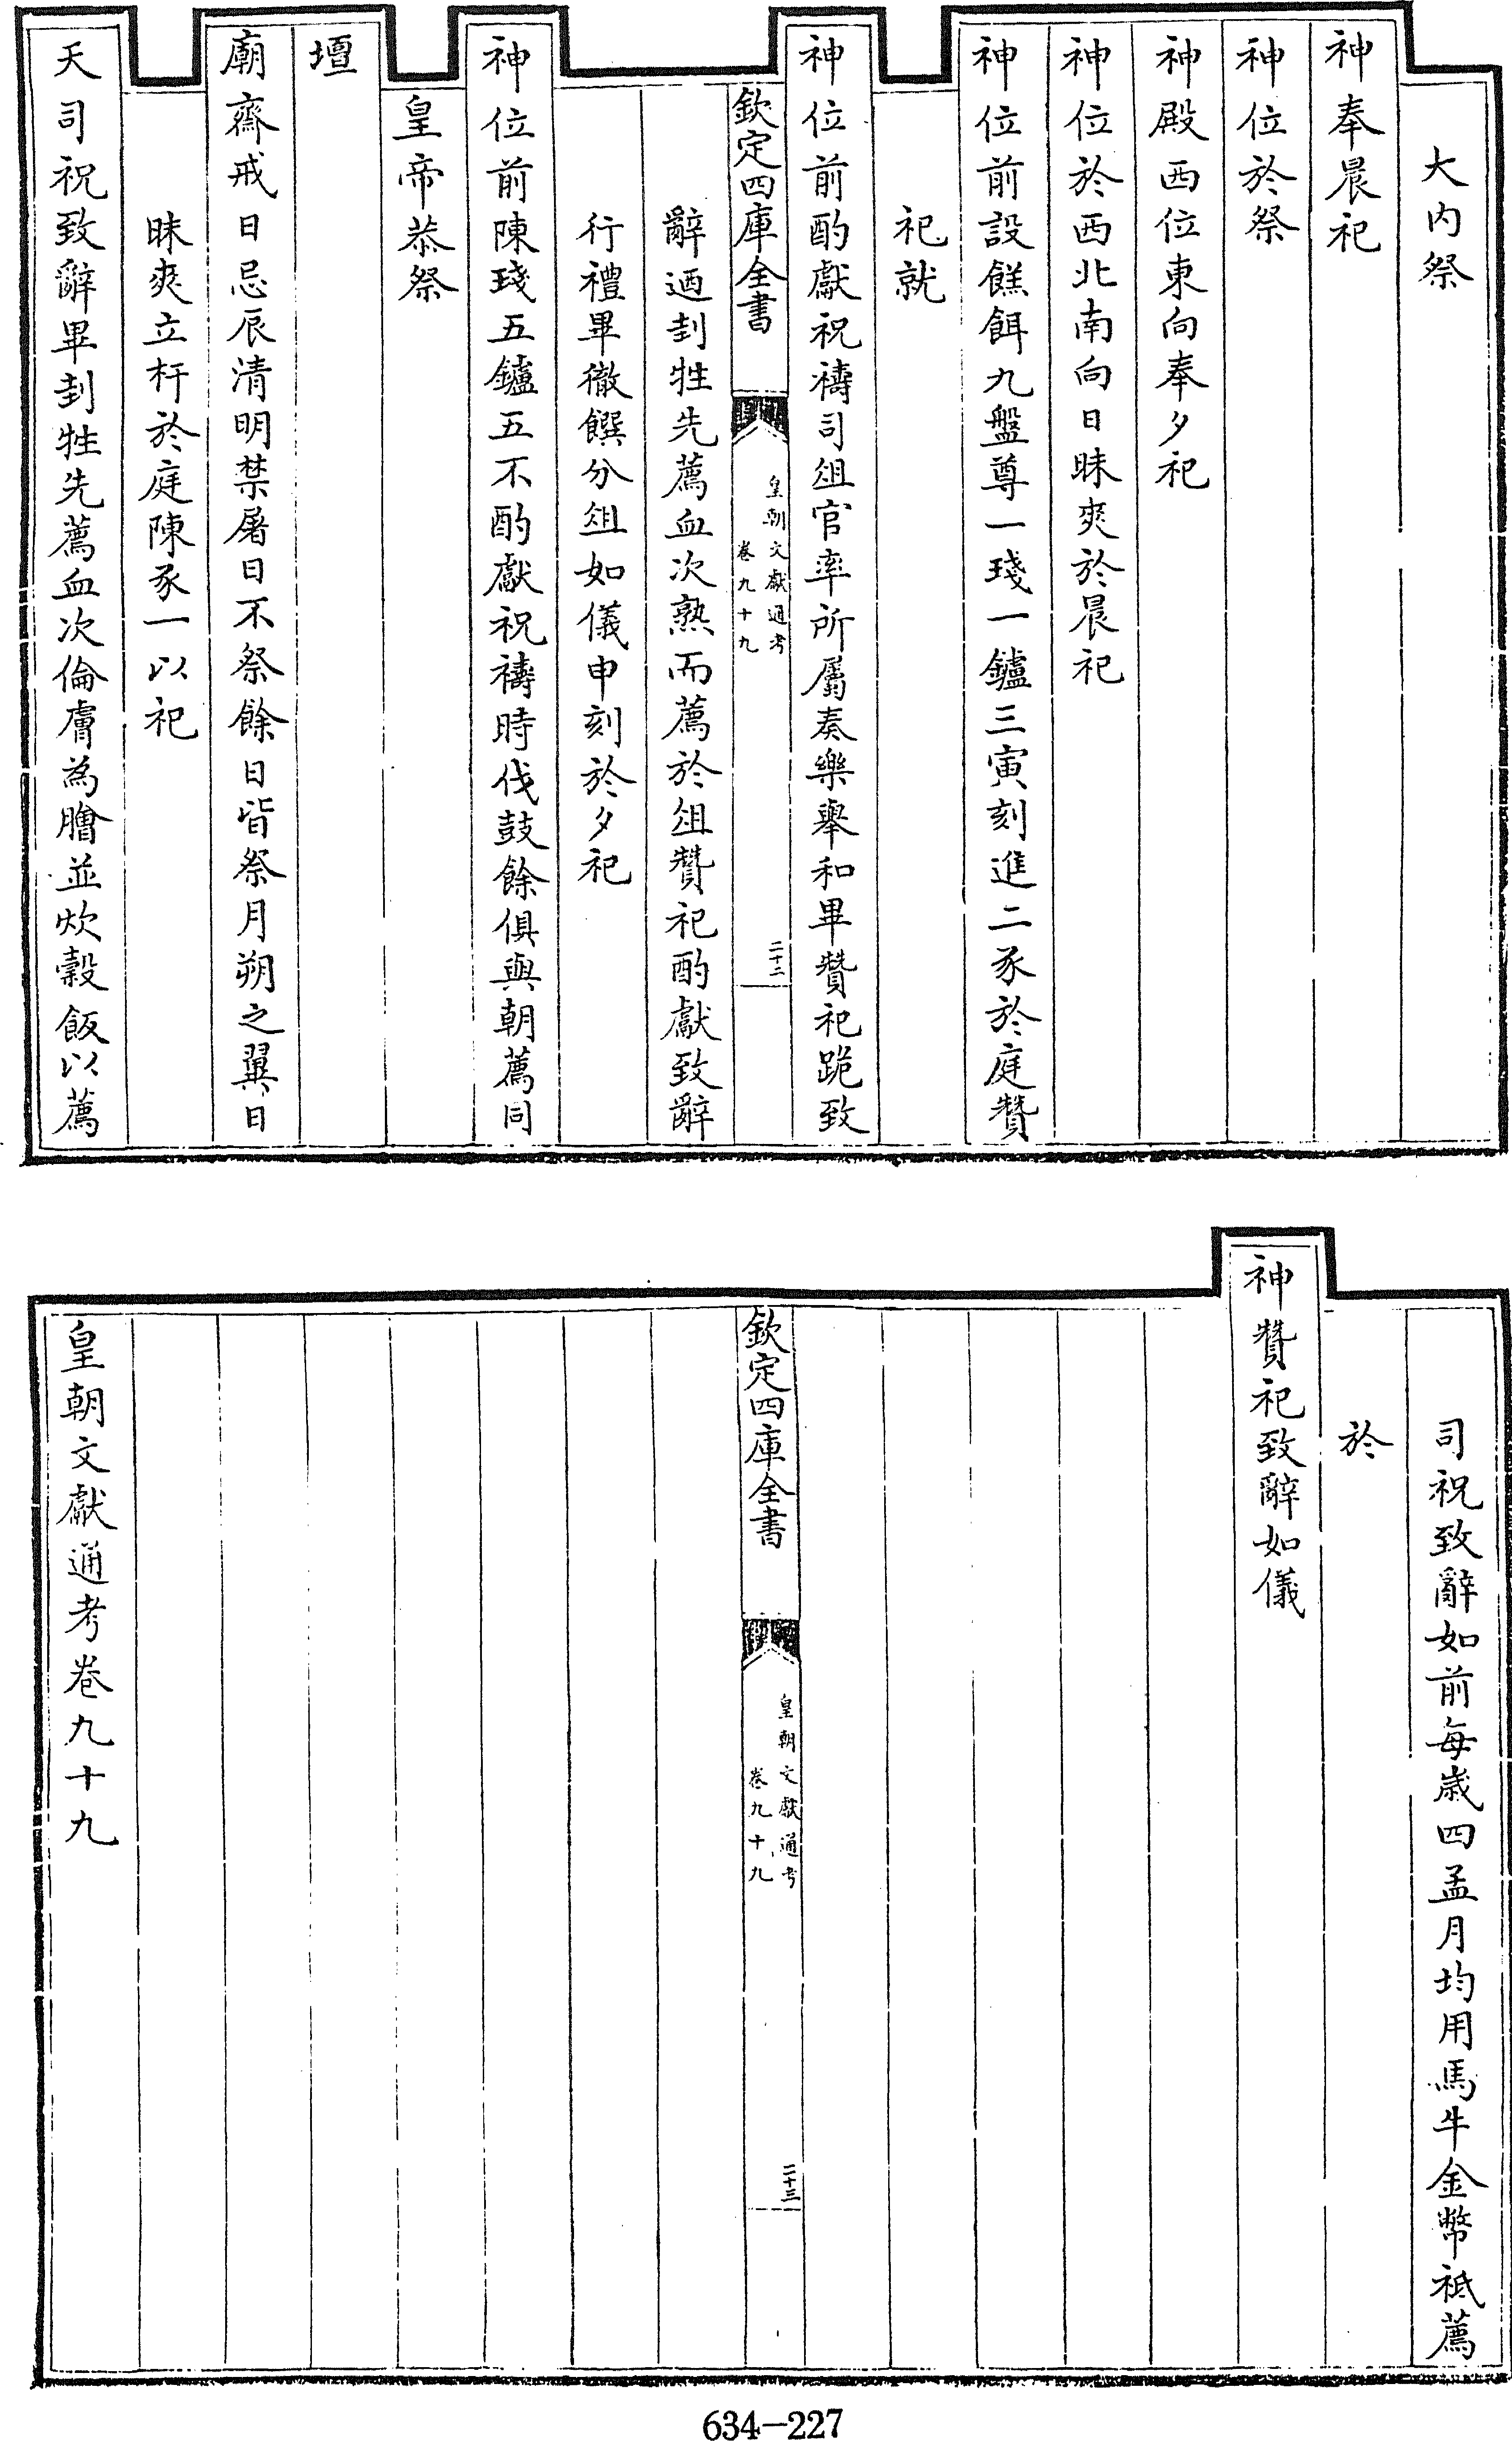 大内祭
神奉晨祀
神位於祭
神殿西位東向奉夕祀
神位於西北南向日昧爽於晨祀
神位前設餻餌九盤尊一琖一鑪三寅刻進二豕於庭贊
祀就
神位前酌獻祝禱司俎官率所屬奏樂舉和畢贊祀跪致
欽定四庫全書
皇朝文獻通考
卷九十九
二十二
辭迺刲牲先薦血次熟而薦於俎贊祀酌獻致辭
行禮畢徹饌分俎如儀申刻於夕祀
神位前陳琖五鑪五不酌獻祝禱時伐鼓餘俱與朝薦同
皇帝恭祭
壇
廟齋戒日忌辰清明禁屠日不祭餘日皆祭月朔之翼日
昧爽立杆於庭陳豕一以祀
天司祝致辭畢刲牲先薦血次倫膚為膾並炊穀飯以薦
司祝致辭如前每歲四孟月均用馬牛金幣祗薦
於
神贊祀致辭如儀
欽定四庫全書
皇朝文獻通考
卷九十九
二十三
皇朝文獻通考卷九十九
634-227